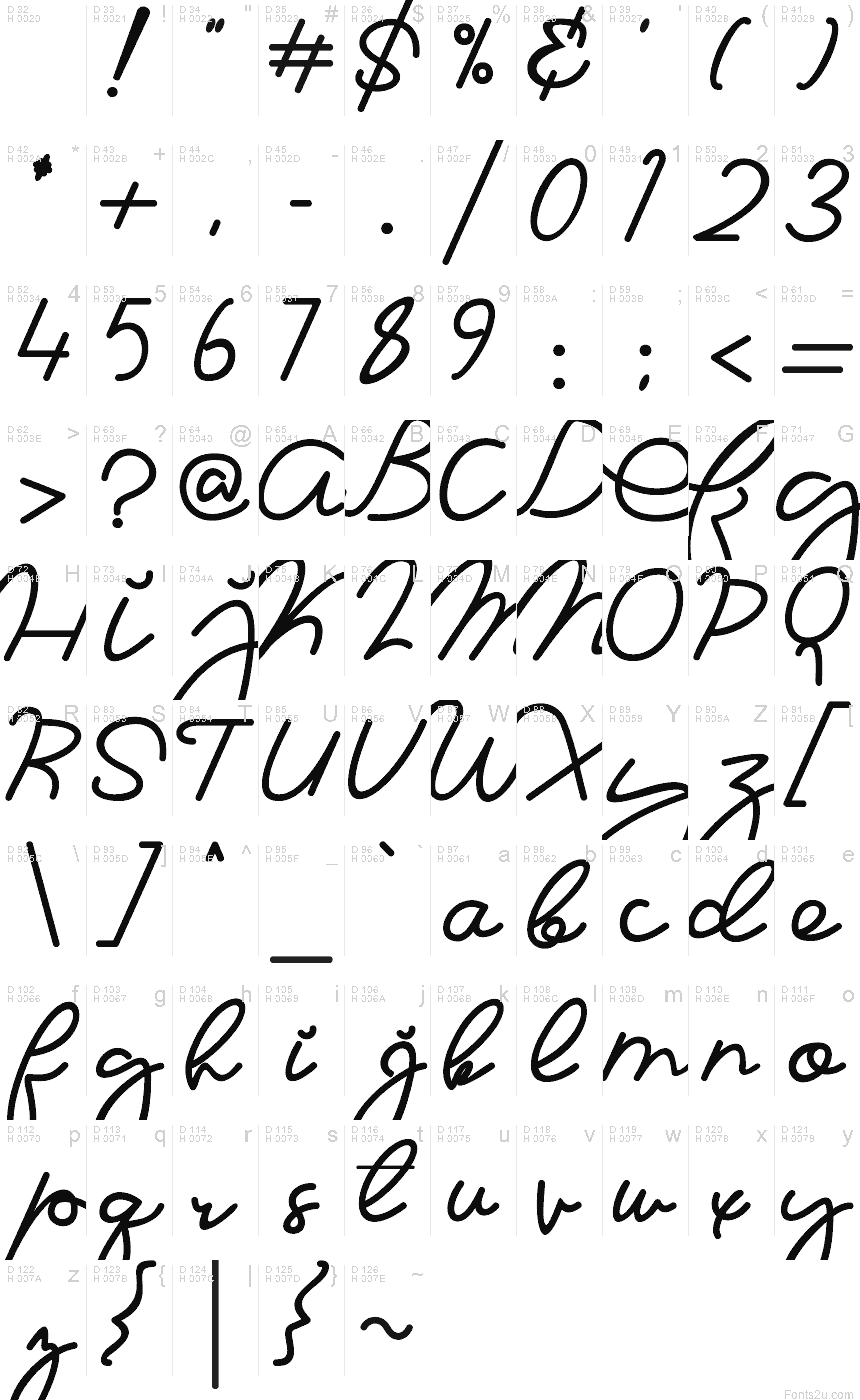 D 32 H 0020 D 33 H 0021 ! D 34 H 0022 " D 35 H 0023 # D 36 H 0024 $ D 37 H 0025 % D 38 H 0026 & D 39 H 0027 ' D 40 H 0028 ( D 41 H 0029 )
! " # $ % & ' ( )
D 42 H 002A * D 43 H 002B + D 44 H 002C , D 45 H 002D - D 46 H 002E . D 47 H 002F / D 48 H 0030 0 D 49 H 0031 1 D 50 H 0032 2 D 51 H 0033 3
* + , - . / 0 1 2 3
D 52 H 0034 4 D 53 H 0035 5 D 54 H 0036 6 D 55 H 0037 7 D 56 H 0038 8 D 57 H 0039 9 D 58 H 003A : D 59 H 003B ; D 60 H 003C < D 61 H 003D =
4 5 6 7 8 9 : ; < =
D 62 H 003E > D 63 H 003F ? D 64 H 0040 @ D 65 H 0041 A D 66 H 0042 B D 67 H 0043 C D 68 H 0044 D D 69 H 0045 E D 70 H 0046 F D 71 H 0047 G
> ? @ a B C D e f g
D 72 H 0048 H D 73 H 0049 I D 74 H 004A J D 75 H 004B K D 76 H 004C L D 77 H 004D M D 78 H 004E N D 79 H 004F O D 80 H 0050 P D 81 H 0051 Q
H I J K L M N O P Q
D 82 H 0052 R D 83 H 0053 S D 84 H 0054 T D 85 H 0055 U D 86 H 0056 V D 87 H 0057 W D 88 H 0058 X D 89 H 0059 Y D 90 H 005A Z D 91 H 005B [
R S T U V W X Y Z [
D 92 H 005C \ D 93 H 005D ] D 94 H 005E ^ D 95 H 005F _ D 96 H 0060 ` D 97 H 0061 a D 98 H 0062 b D 99 H 0063 c D 100 H 0064 d D 101 H 0065 e
\ ] ^ _ ` a b c d e
D 102 H 0066 f D 103 H 0067 g D 104 H 0068 h D 105 H 0069 i D 106 H 006A j D 107 H 006B k D 108 H 006C l D 109 H 006D m D 110 H 006E n D 111 H 006F o
f g h i j k l m n o
D 112 H 0070 p D 113 H 0071 q D 114 H 0072 r D 115 H 0073 s D 116 H 0074 t D 117 H 0075 u D 118 H 0076 v D 119 H 0077 w D 120 H 0078 x D 121 H 0079 y
p q r s t u v w x y
D 122 H 007A z D 123 H 007B { D 124 H 007C | D 125 H 007D } D 126 H 007E ~
z { | } ~
Fonts2u.com